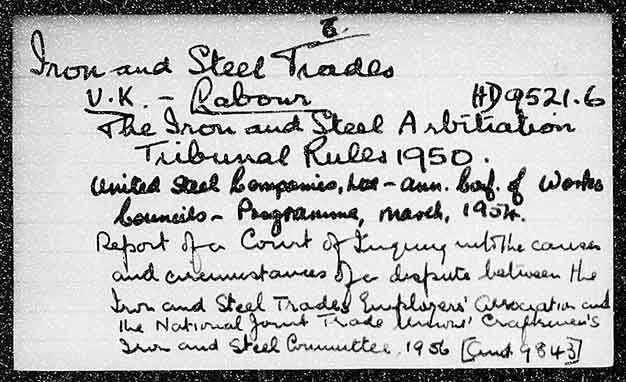 6.
Iron and Steel Trades
U.K. - Labour HD9521.6
The Iron and Steel Arbitration
Tribunal Rules 1950.
United Steel Companies, Ltd - Ann. Conf. of Works
Councils - Programme, March, 1954.
Report of a Court of Inquiry into the causes
and circumstances of a dispute between the
Iron and Steel Trades Employers' Association and
the National Joint Trade Unions' Craftsmen's
Iron and Steel Committee, 1956 [Cmd 9843]